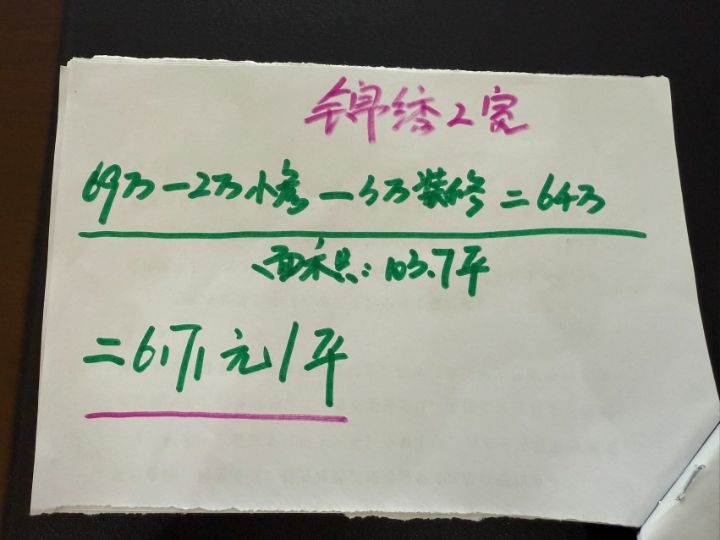 锦绣2宽
69万-2万小房-3万装修=64万
面积:103.7平
=6171元/平